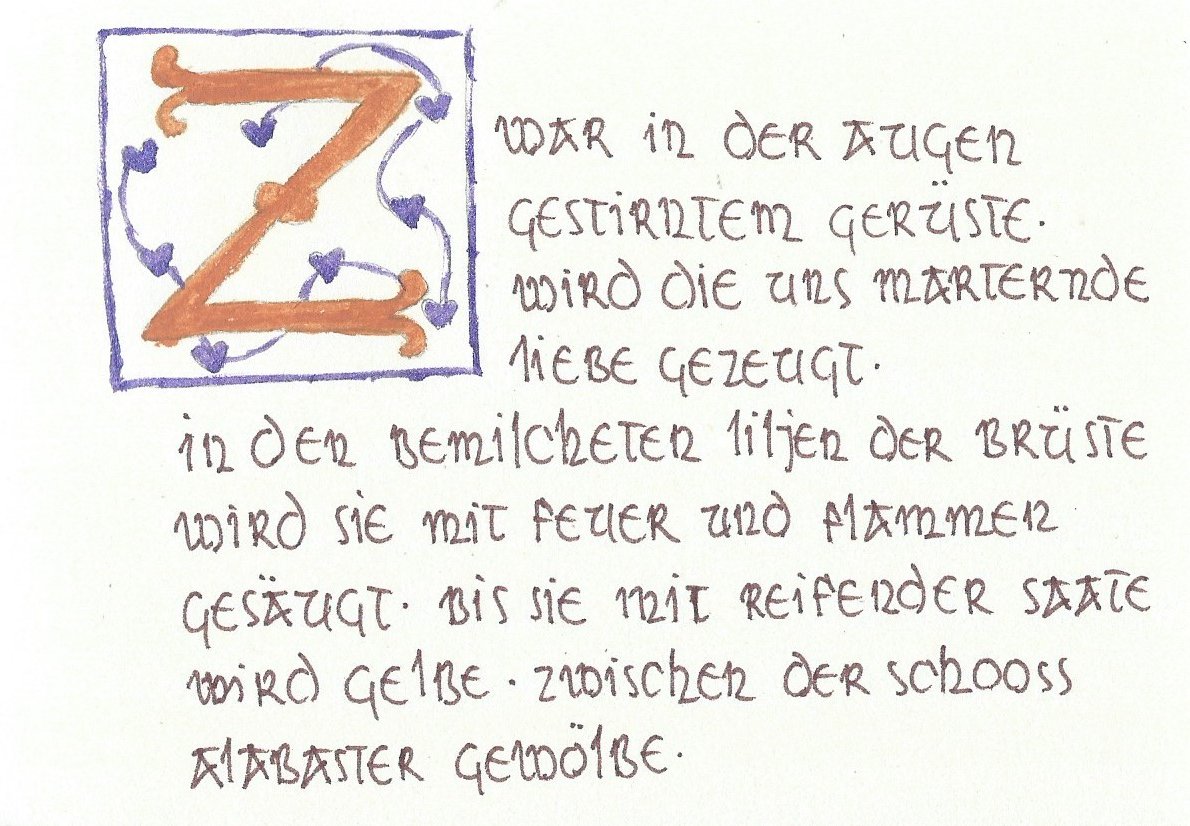 ZWAR IN DER AUGEN
GESTIRNTEM GERÜSTE.
WIRD DIE UNS MARTERNDE
LIEBE GEZEUGT.
IN DEN BEMILCHETEN LILJEN DER BRÜSTE
WIRD SIE MIT FEUER UND FLAMMEN
GESÄUGT. BIS SIE MIT REIFENDER SAATE
WIRD GELBE. ZWISCHEN DER SCHOOSS
ALABASTER GEWÖLBE.